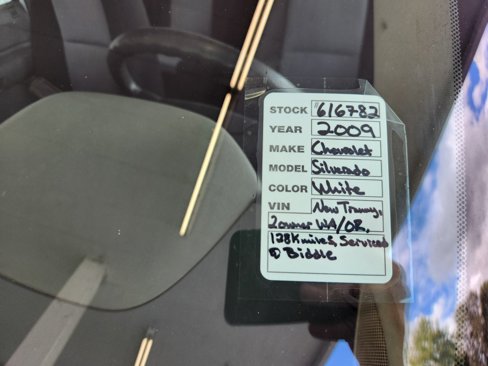 STOCK #616782
YEAR 2009
MAKE Chevrolet
MODEL Silverado
COLOR White
VIN New Tranny,
2owner WA/OR,
128K miles, Serviced
@ Biddle